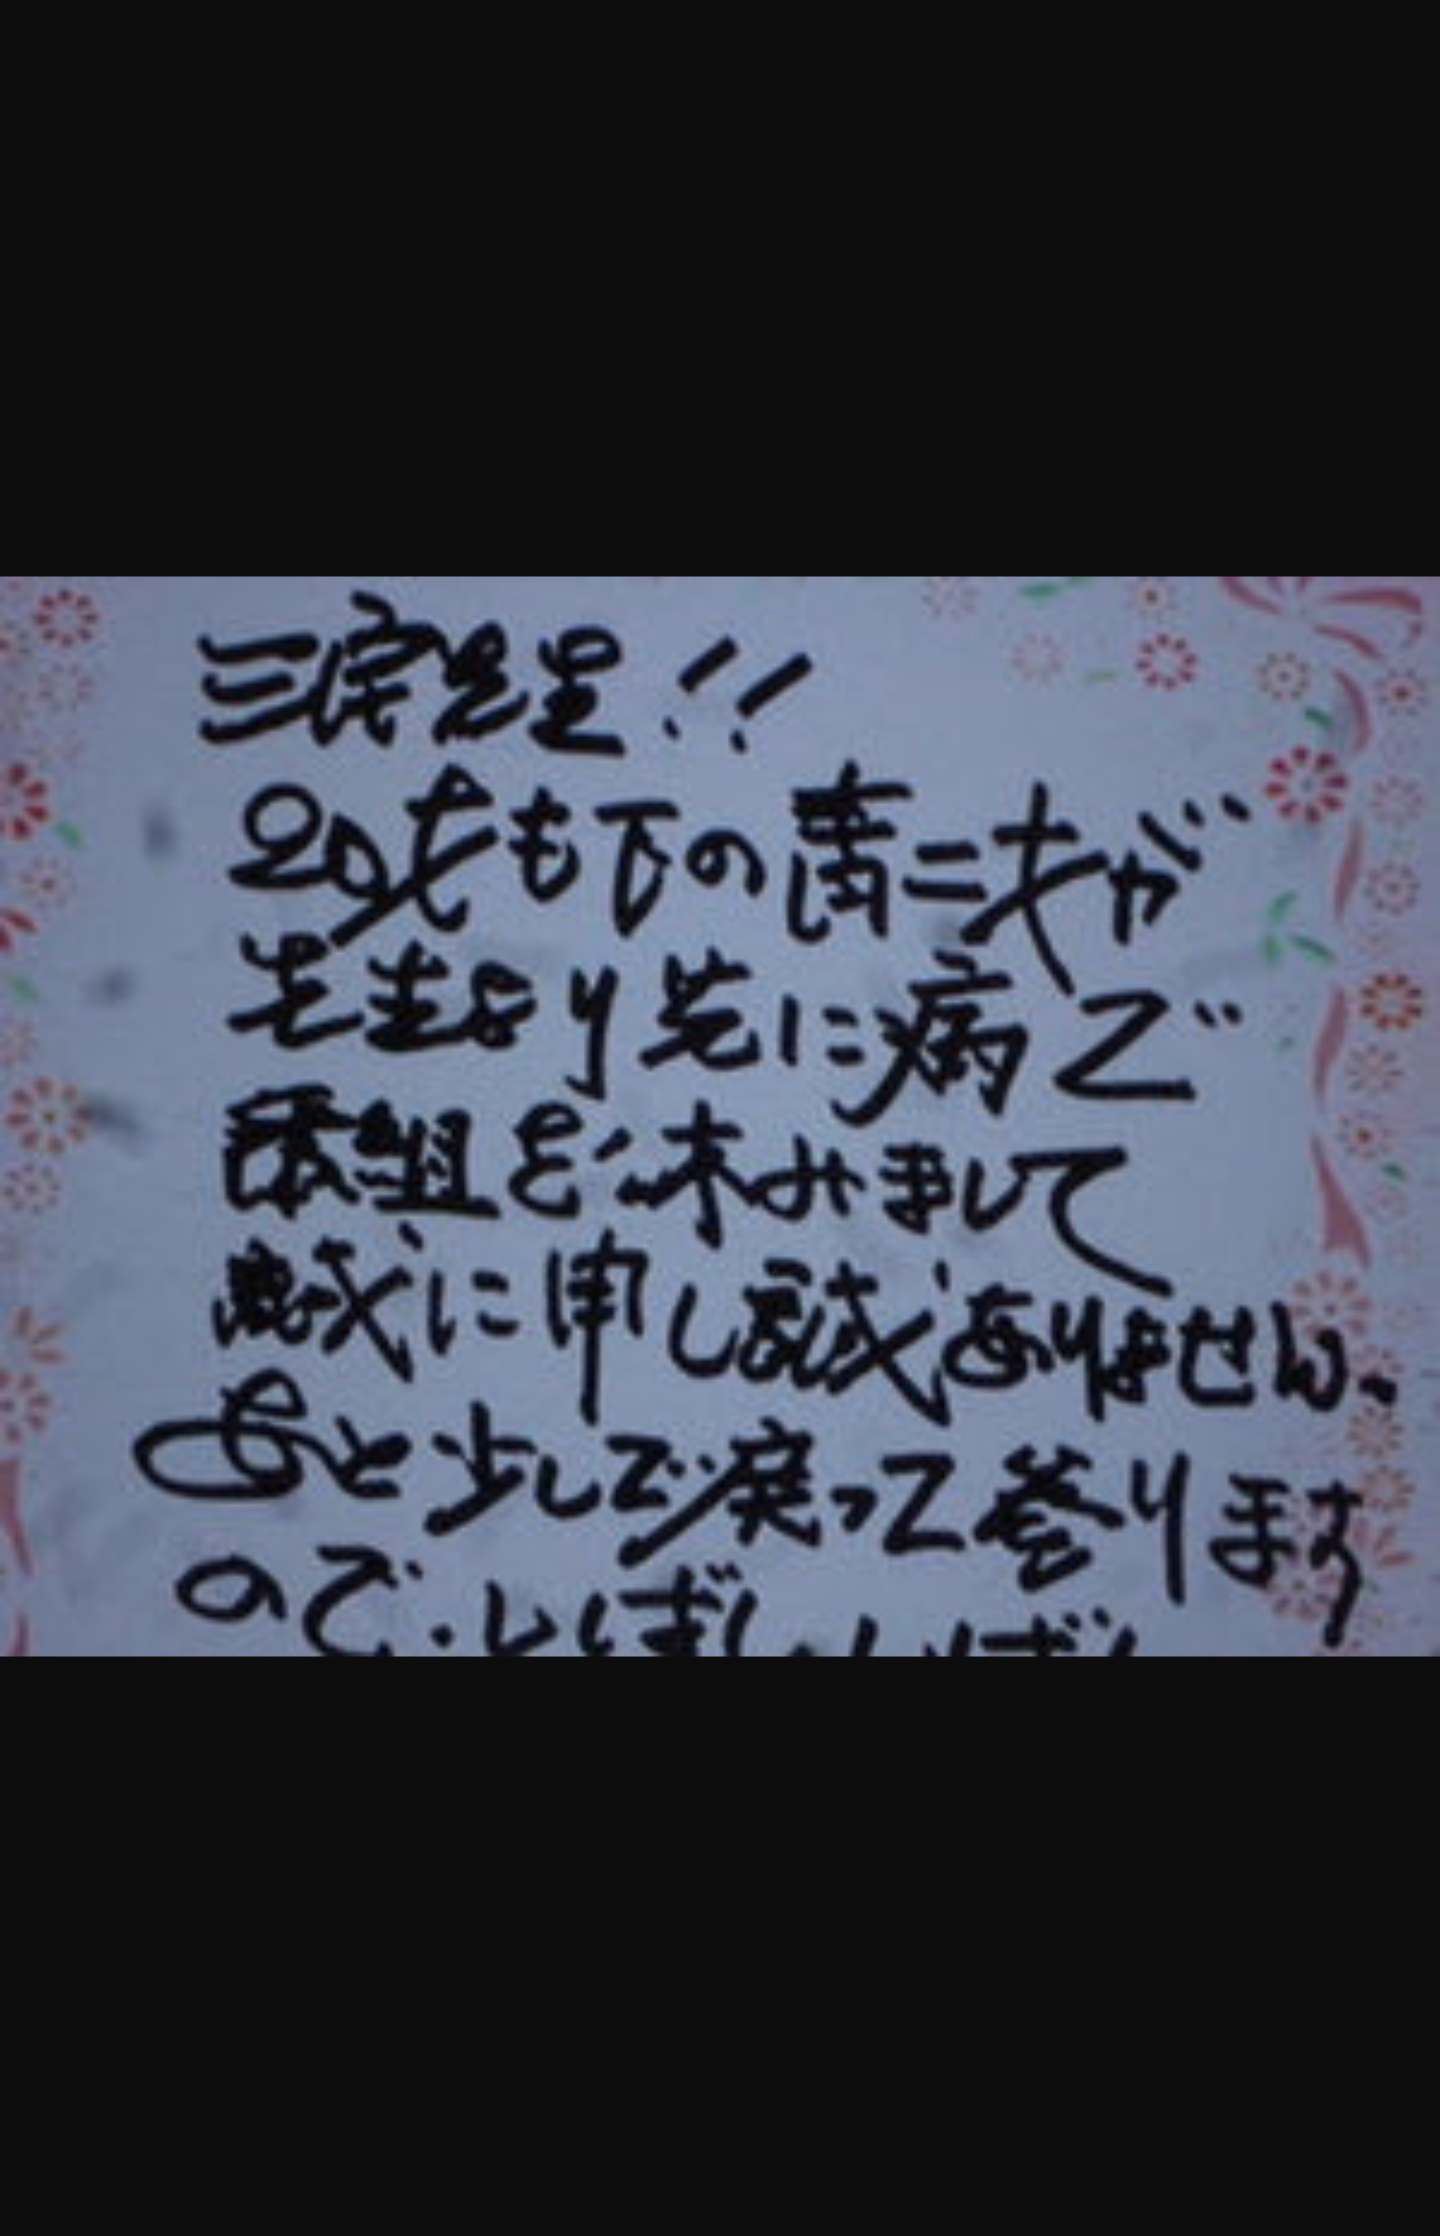 三宅先生!!
20才も下の青二才が
先生より先に病で
番組を休みまして
誠に申し誠ありません.
あと少しで戻って参ります
ので.しばし.しばし